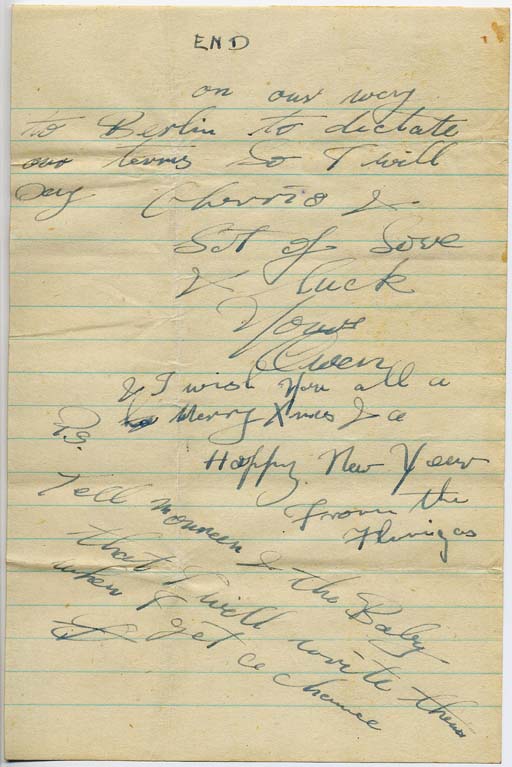 END
on our way
to Berlin to dictate
our terms So I will
Say Cherrio &
Lot of Love
& luck
Yours
Owen
& I wish you all a
Merry Xmas & a
Happy New Year
from the
P.S.
Tell Moureen & the Baby
that I will write them
when I get a chance